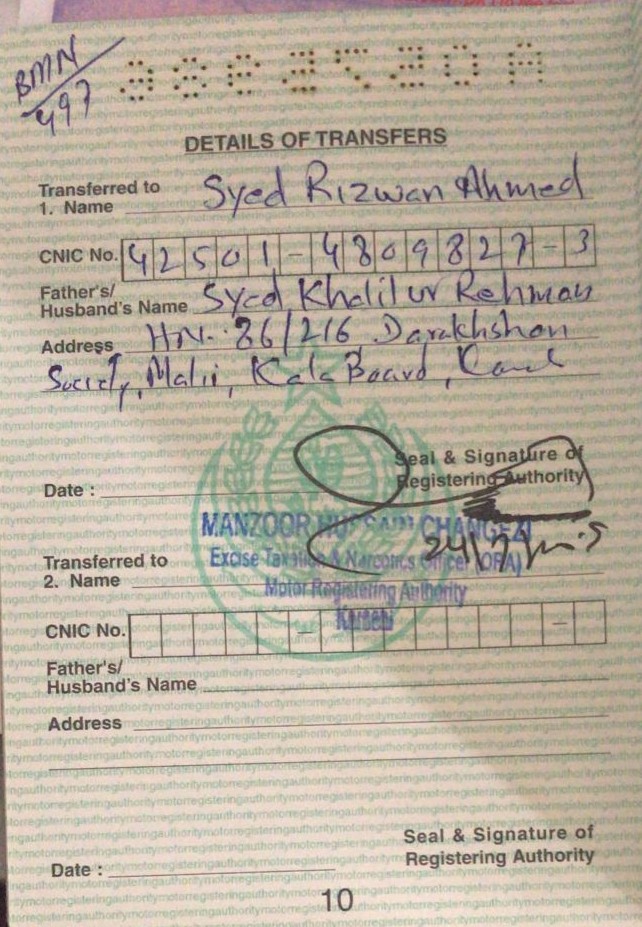 BMN
497
DETAILS OF TRANSFERS
Transferred to
1. Name Syed Rizwan Ahmed
CNIC No. 42501-4809827-3
Father's/
Husband's Name Syed Khalil ur Rehman
Address HN.: 86/216 Darakhshan
Society, Malir, Kala Board,
Seal & Signature of
Registering Authority
Date :
MANZOOR HUSSAIN CHANGEZI
Excise Taxation & Narcotics Officer (ORA)
Motor Registering Authority
Karachi
Transferred to
2. Name
CNIC No. - -
Father's/
Husband's Name
Address
Seal & Signature of
Registering Authority
Date :
10